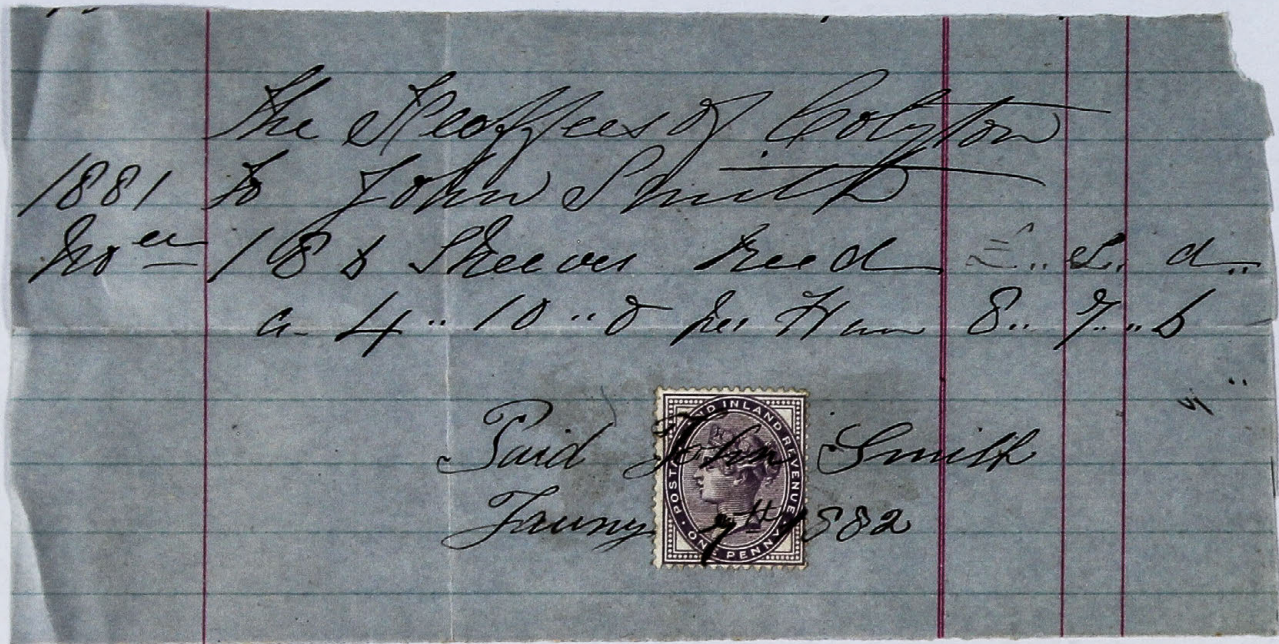 The Feoffees of Colyton
1881 To John Smith
Nov er 186 Sheeves Reed £.. s.. d..
a 4..10..0 per Hun 8..7..6
Paid John Smith
Janury 7th 1882
POSTAGE AND INLAND REVENUE
ONE PENNY